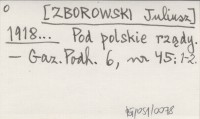 o
[ZBOROWSKI Juliusz]
1918... Pod polskie rządy.
— Gaz. Podh. 6, nr 45: 1-2.